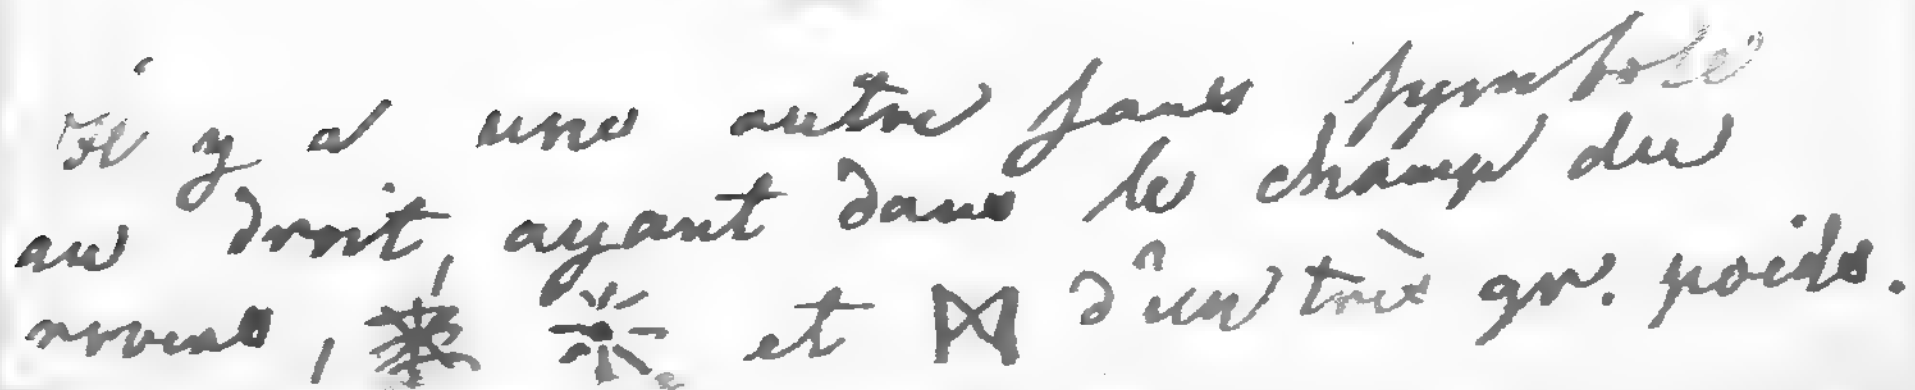 Il y a une autre sans symbole
au droit, ayant dans le champ du
revers, et d'un très gr. poids.